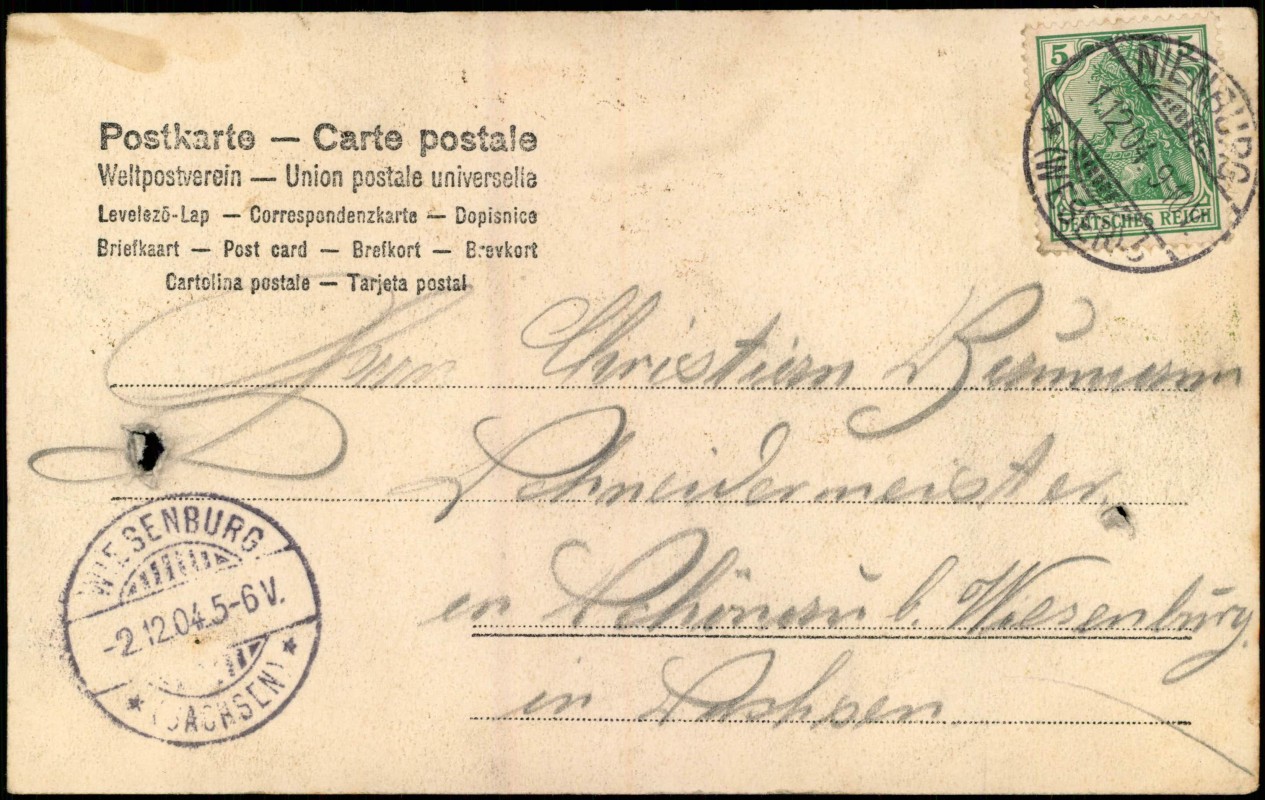 Postkarte — Carte postale
Weltpostverein — Union postale universelle
Levelező-Lap — Correspondenzkarte — Dopisnice
Briefkaart — Post card — Brefkort — Brevkort
Cartolina postale — Tarjeta postal
5 5
DEUTSCHES REICH
NIENBURG
1.12.04. 9
(WESER)
Herrn Christian Baumann
Schneidermeister
in Schönau b. Wiesenburg
in Sachsen
WIESENBURG
-2.12.04.5-6V.
* (SACHSEN) *